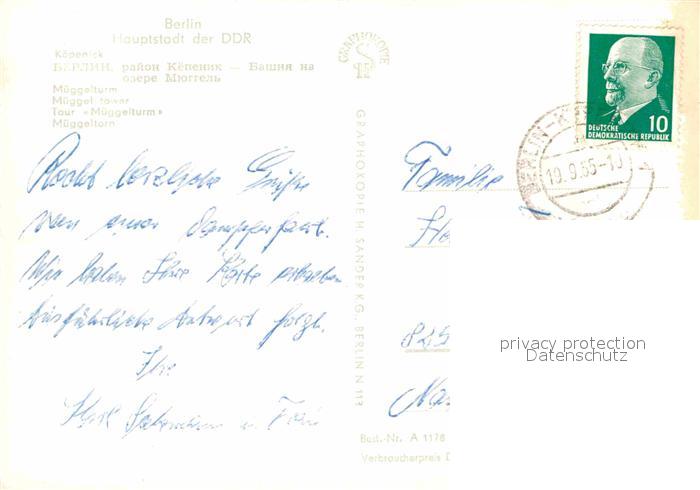 Berlin
Hauptstadt der DDR
Köpenick
БЕРЛИН, район Кёпеник — Башня на
озере Мюггель
Müggelturm
Müggel tower
Tour «Müggelturm»
Müggeltorn
GRAPHOKOPIE
GRAPHOKOPIE H. SANDER KG. BERLIN N 113
DEUTSCHE
DEMOKRATISCHE REPUBLIK
10
BERLIN-K
19.9.65-10
Recht herzliche Grüße
von einer Dampferfahrt.
Wir haben Ihre Karte erhalten
Ausführliche Antwort folgt.
Ihre
u. Frau
Familie
privacy protection
Datenschutz
Best.-Nr. A 1178
Verbraucherpreis